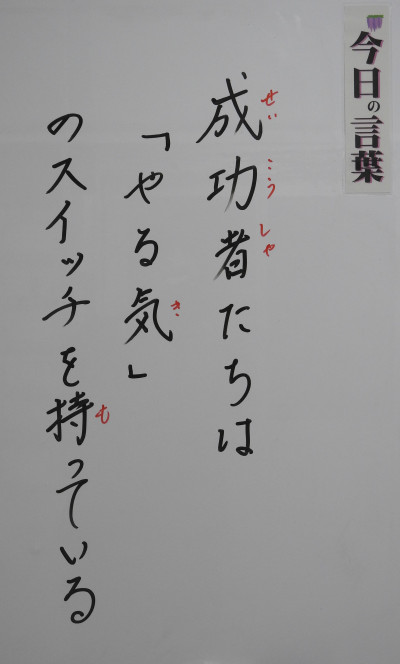 今日の言葉
成功者たちは
せいこうしゃ
「やる気」
き
のスイッチを持っている
も